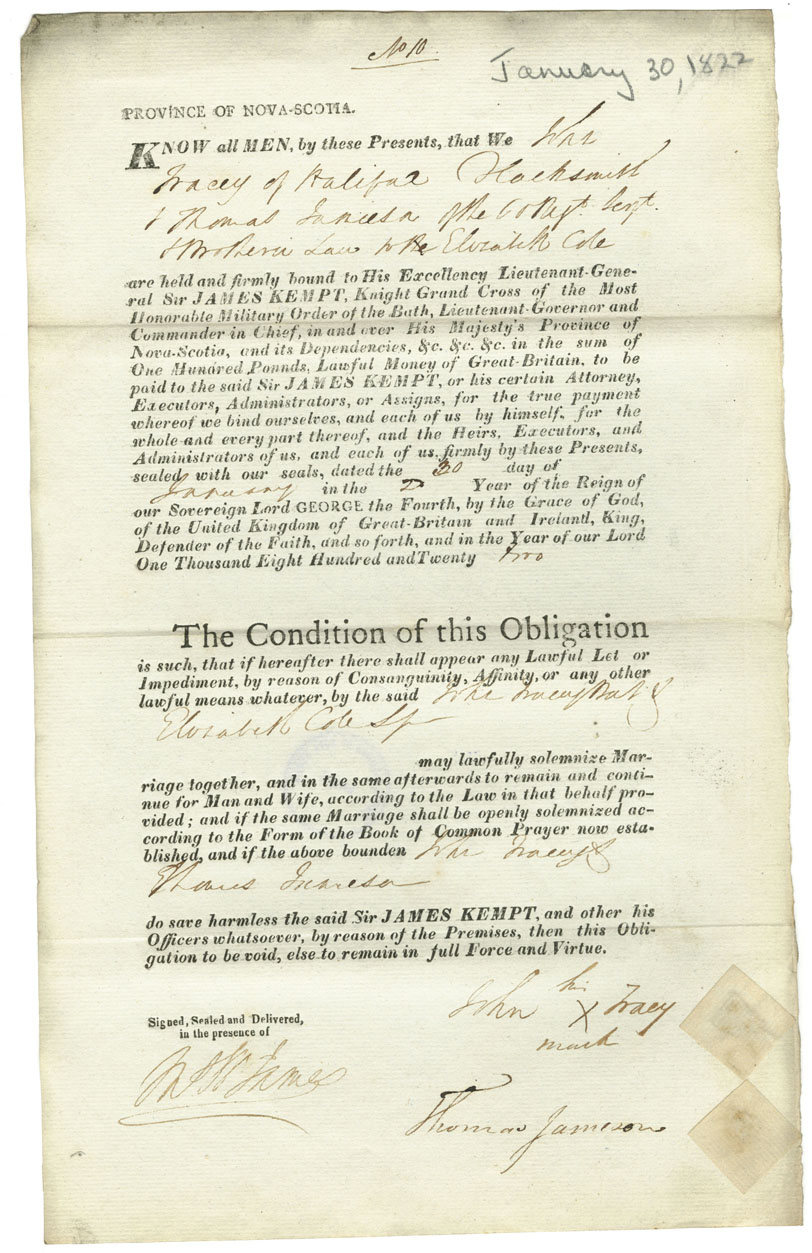 No 10
January 30, 1822
PROVINCE OF NOVA-SCOTIA.
KNOW all MEN, by these Presents, that We John
Tracey of Halifax
& Thomas Jameson of the 60 Regt. Sergt.
& Brother in Law to the Elizabeth Cole
are held and firmly bound to His Excellency Lieutenant-Gene-
ral Sir JAMES KEMPT, Knight Grand Cross of the Most
Honorable Military Order of the Bath, Lieutenant-Governor and
Commander in Chief, in and over His Majesty's Province of
Nova-Scotia, and its Dependencies, &c. &c. &c. in the sum of
One Hundred Pounds, Lawful Money of Great-Britain, to be
paid to the said Sir JAMES KEMPT, or his certain Attorney,
Executors, Administrators, or Assigns, for the true payment
whereof we bind ourselves, and each of us by himself, for the
whole and every part thereof, and the Heirs, Executors, and
Administrators of us, and each of us firmly by these Presents,
sealed with our seals, dated the 30 day of
January in the 2 Year of the Reign of
our Sovereign Lord GEORGE the Fourth, by the Grace of God,
of the United Kingdom of Great-Britain and Ireland, King,
Defender of the Faith, and so forth, and in the Year of our Lord
One Thousand Eight Hundred and Twenty two
The Condition of this Obligation
is such, that if hereafter there shall appear any Lawful Let or
Impediment, by reason of Consanguinity, Affinity, or any other
lawful means whatever, by the said John Tracey Bat &
Elizabeth Cole Sp
may lawfully solemnize Mar-
riage together, and in the same afterwards to remain and conti-
nue for Man and Wife, according to the Law in that behalf pro-
vided; and if the same Marriage shall be openly solemnized ac-
cording to the Form of the Book of Common Prayer now esta-
blished, and if the above bounden John Tracey &
Thomas Jameson
do save harmless the said Sir JAMES KEMPT, and other his
Officers whatsoever, by reason of the Premises, then this Obli-
gation to be void, else to remain in full Force and Virtue.
his
John X Tracy
mark
Signed, Sealed and Delivered,
in the presence of
James
Thomas Jameson